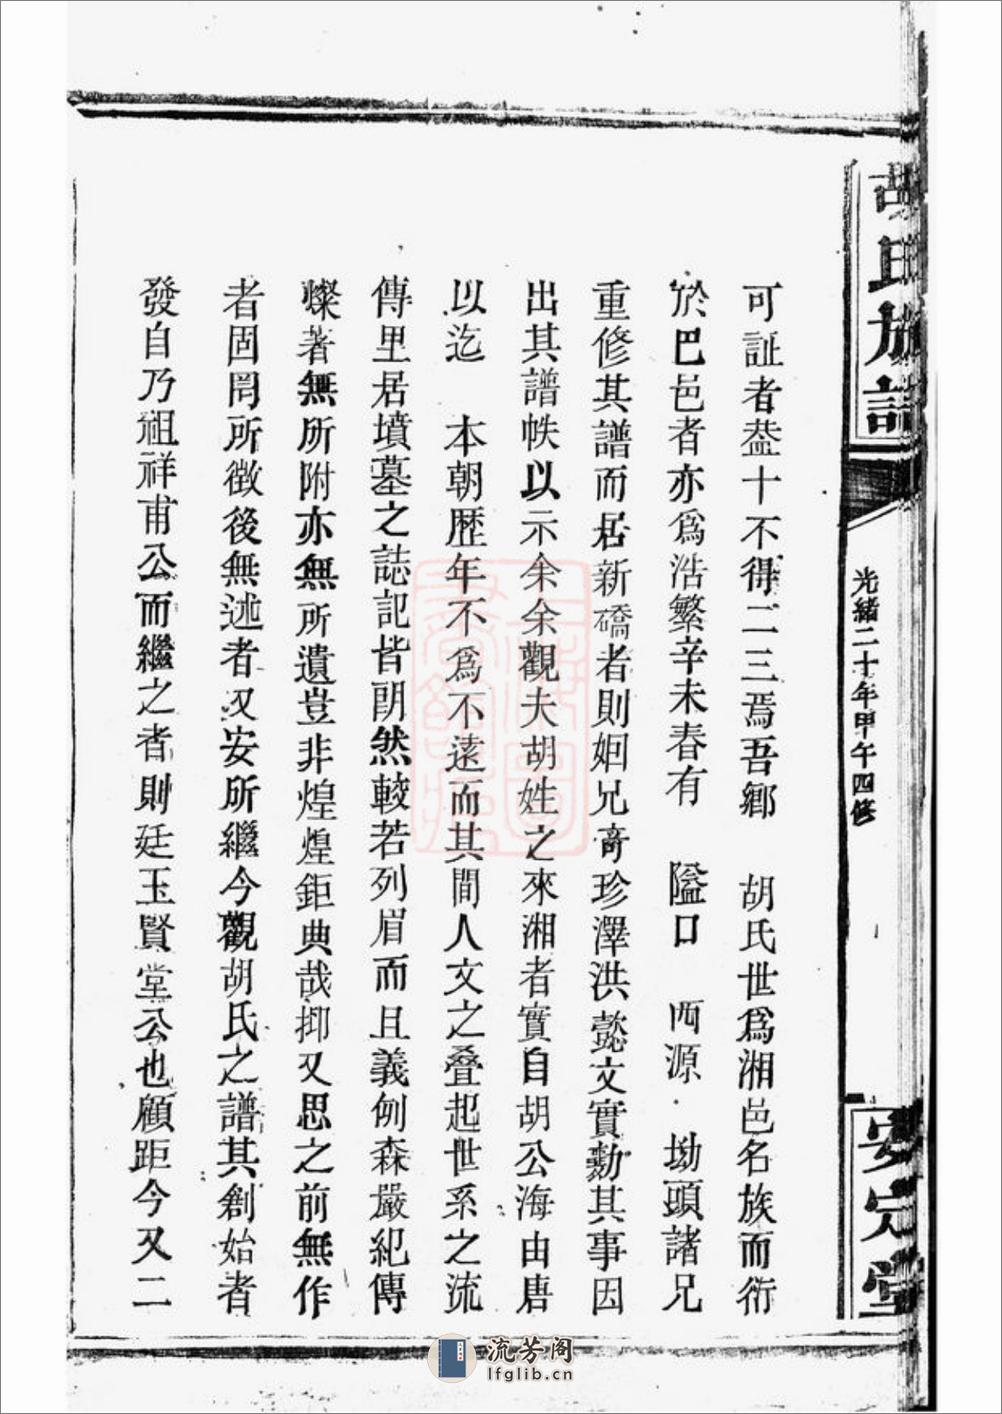 胡氏族譜
光緒二十年甲午四修
安定堂
可証者葢十不得二三焉吾鄉 胡氏世爲湘邑名族而衍
於巴邑者亦爲浩繁辛未春有 隘口 西源 坳頭諸兄
重修其譜而居新礄者則姻兄奇珍澤洪懿文實勷其事因
出其譜帙以示余余觀夫胡姓之來湘者實自胡公海由唐
以迄 本朝歷年不爲不遠而其間人文之叠起世系之流
傳里居墳墓之誌記皆朗然較若列眉而且義例森嚴紀傳
燦著無所附亦無所遺豈非煌煌鉅典哉抑又思之前無作
者固罔所徵後無述者又安所繼今觀胡氏之譜其創始者
發自乃祖祥甫公而繼之者則廷玉賢堂公也顧距今又二
流芳阁
lfglib.cn